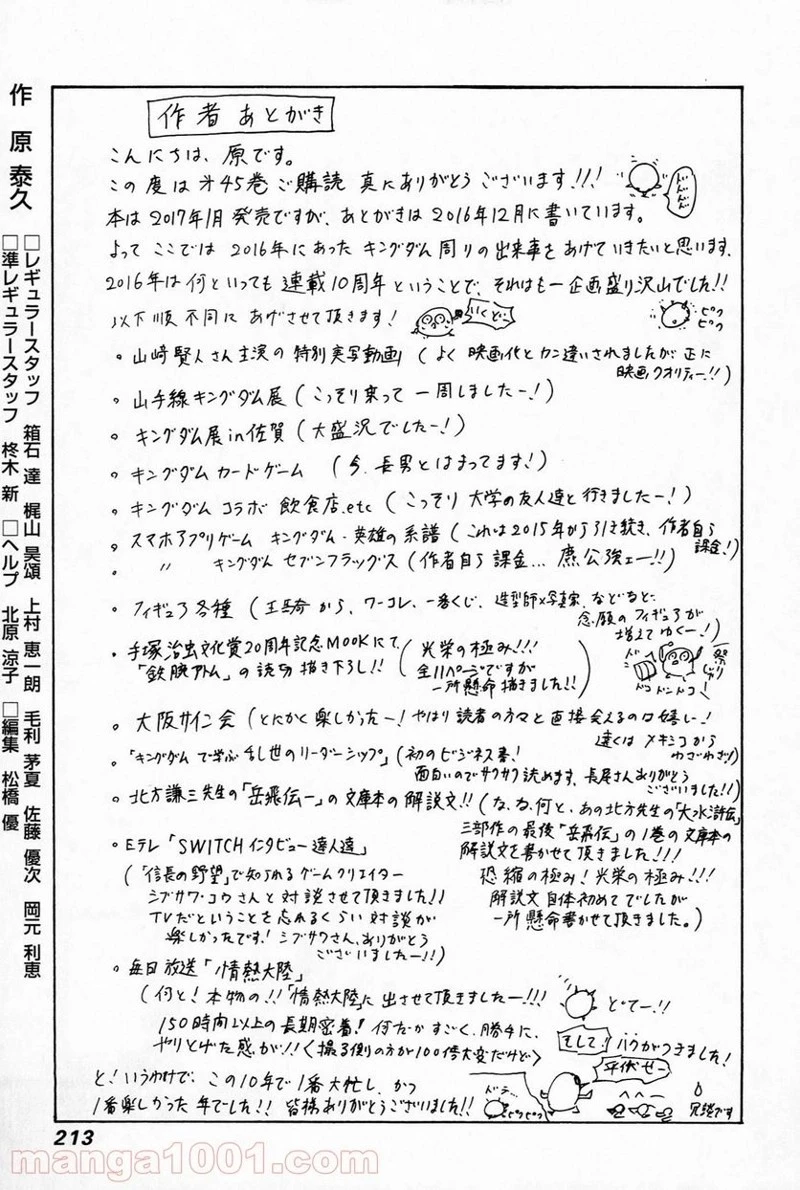 作者あとがき
こんにちは、原です。
この度は才45巻ご購読 真にありがとうございます!!!
どんどんどん
本は2017年1月発売ですが、あとがきは2016年12月に書いています。
よってここでは2016年にあったキングダム周りの出来事をあげていきたいと思います。
2016年は何といっても連載10周年ということで、それはも一企画盛り沢山でした!!
以下順不同にあげさせて頂きます!
いくどー
ピク
ピク
。山﨑賢人さん主演の特別実写動画(よく映画化とカン違いされましたが正に
映画クオリティー!!)
。山手線キングダム展(こっそり乗って一周しましたー!)
。キングダム展in佐賀(大盛況でしたー!)
。キングダムカードゲーム (今、長男とはまってます!)
。キングダムコラボ飲食店.etc(こっそり大学の友人達と行きましたー!)
。スマホアプリゲーム キングダム・英雄の系譜(これは2015年から引き続き、作者自ら
課金!)
。 〃 キングダム セブンフラッグス(作者自ら課金...廉公強ェー!!)
。フィギュア各種(王騎から、ワーコレ、一番くじ、造型師×写真家、などなど
念願のフィギュアが
増えてゆくー!)
。手塚治虫文化賞20周年記念MOOKにて、
「鉄腕アトム」の読切描き下ろし!!
(光栄の極み!!!
全11ページですが
一所懸命描きました!!)
祭
ドンドコ!
。大阪サイン会(とにかく楽しかったー!やはり読者の方々と直接会えるのは嬉しい!
遠くはメキシコから
わざわざ!)
。「キングダムで学ぶ乱世のリーダーシップ」(初のビジネス書!
面白いのでサクサク読めます、長尾さんありがとう
ございました!!)
。北方謙三先生の「岳飛伝一」の文庫本の解説文!!(な、な、何と、あの北方先生の「大水滸伝」
三部作の最後「岳飛伝」の1巻の文庫本の
解説文を書かせて頂きました!!!
恐縮の極み!光栄の極み!!!
解説文自体初めてでしたが
一所懸命書かせて頂きました。)
。Eテレ「SWITCHインタビュー達人達」
(「信長の野望」で知られるゲームクリエイター
シブサワ・コウさんと対談させて頂きました!!
TVだということを忘れるくらい対談が
楽しかったです!シブサワさん、ありがとう
ございましたー!!)
。毎日放送「情熱大陸」
(何と!本物の!!「情熱大陸」に出させて頂きましたー!!!
どてー!!
150時間以上の長期密着!何だかすごく、勝手に、
やりとげた感が!!〈撮る側の方が100倍大変だけど〉
そして!
バクがつきました!
平伏せー
と!いうわけで、この10年で1番大忙し、かつ
1番楽しかった年でした!!皆様ありがとうございました!!
ドテ...
ピクピク
兄弟です
作 原 泰久
□レギュラースタッフ 箱石 達 梶山 昊頌 上村 恵一朗 毛利 茅夏 佐藤 優次 岡元 利恵
□準レギュラースタッフ 柊木 新 □ヘルプ 北原 涼子 □編集 松橋 優
213
manga1001.com